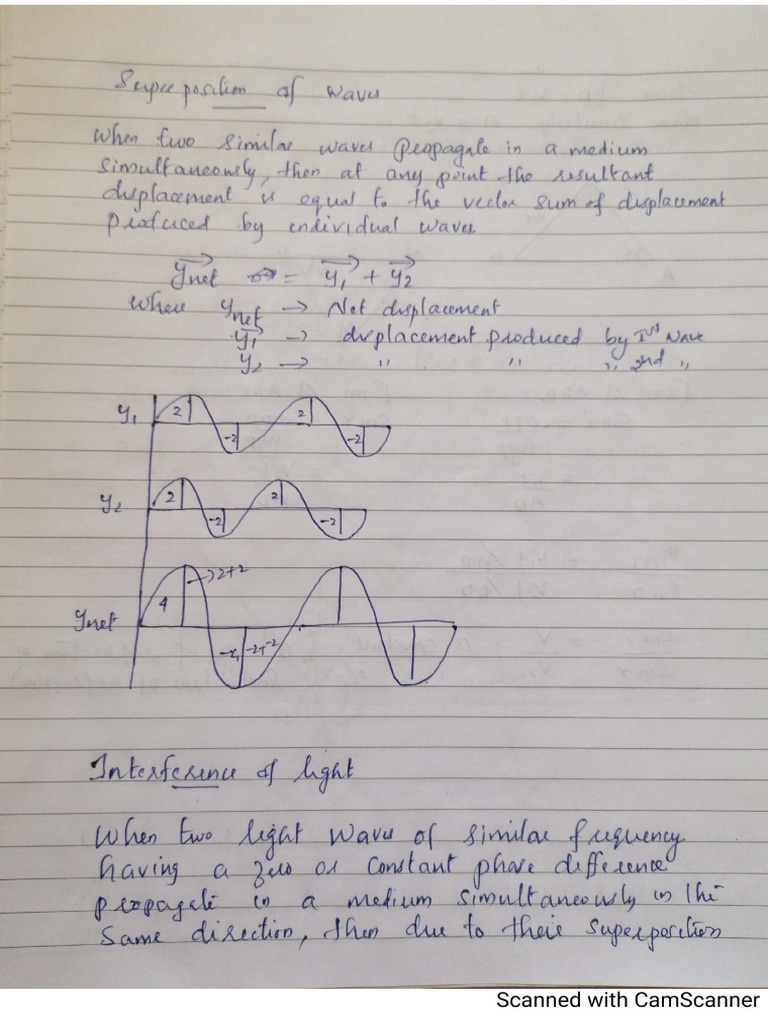 Superposition of waves
When two similar waves propagate in a medium
simultaneously, then at any point the resultant
displacement is equal to the vector sum of displacement
produced by individual waves.
y⃗net = y⃗1 + y⃗2
Where ynet → Net displacement
y⃗1 → displacement produced by Ist Wave
y2 → " " " 2nd "
y1 2 -2 2 -2
y2 2 -2 2 -2
→2+2
ynet 4 -2+-2
Interference of light
When two light waves of similar frequency
having a zero or constant phase difference
propagate in a medium simultaneously in the
same direction, then due to their superposition
Scanned with CamScanner